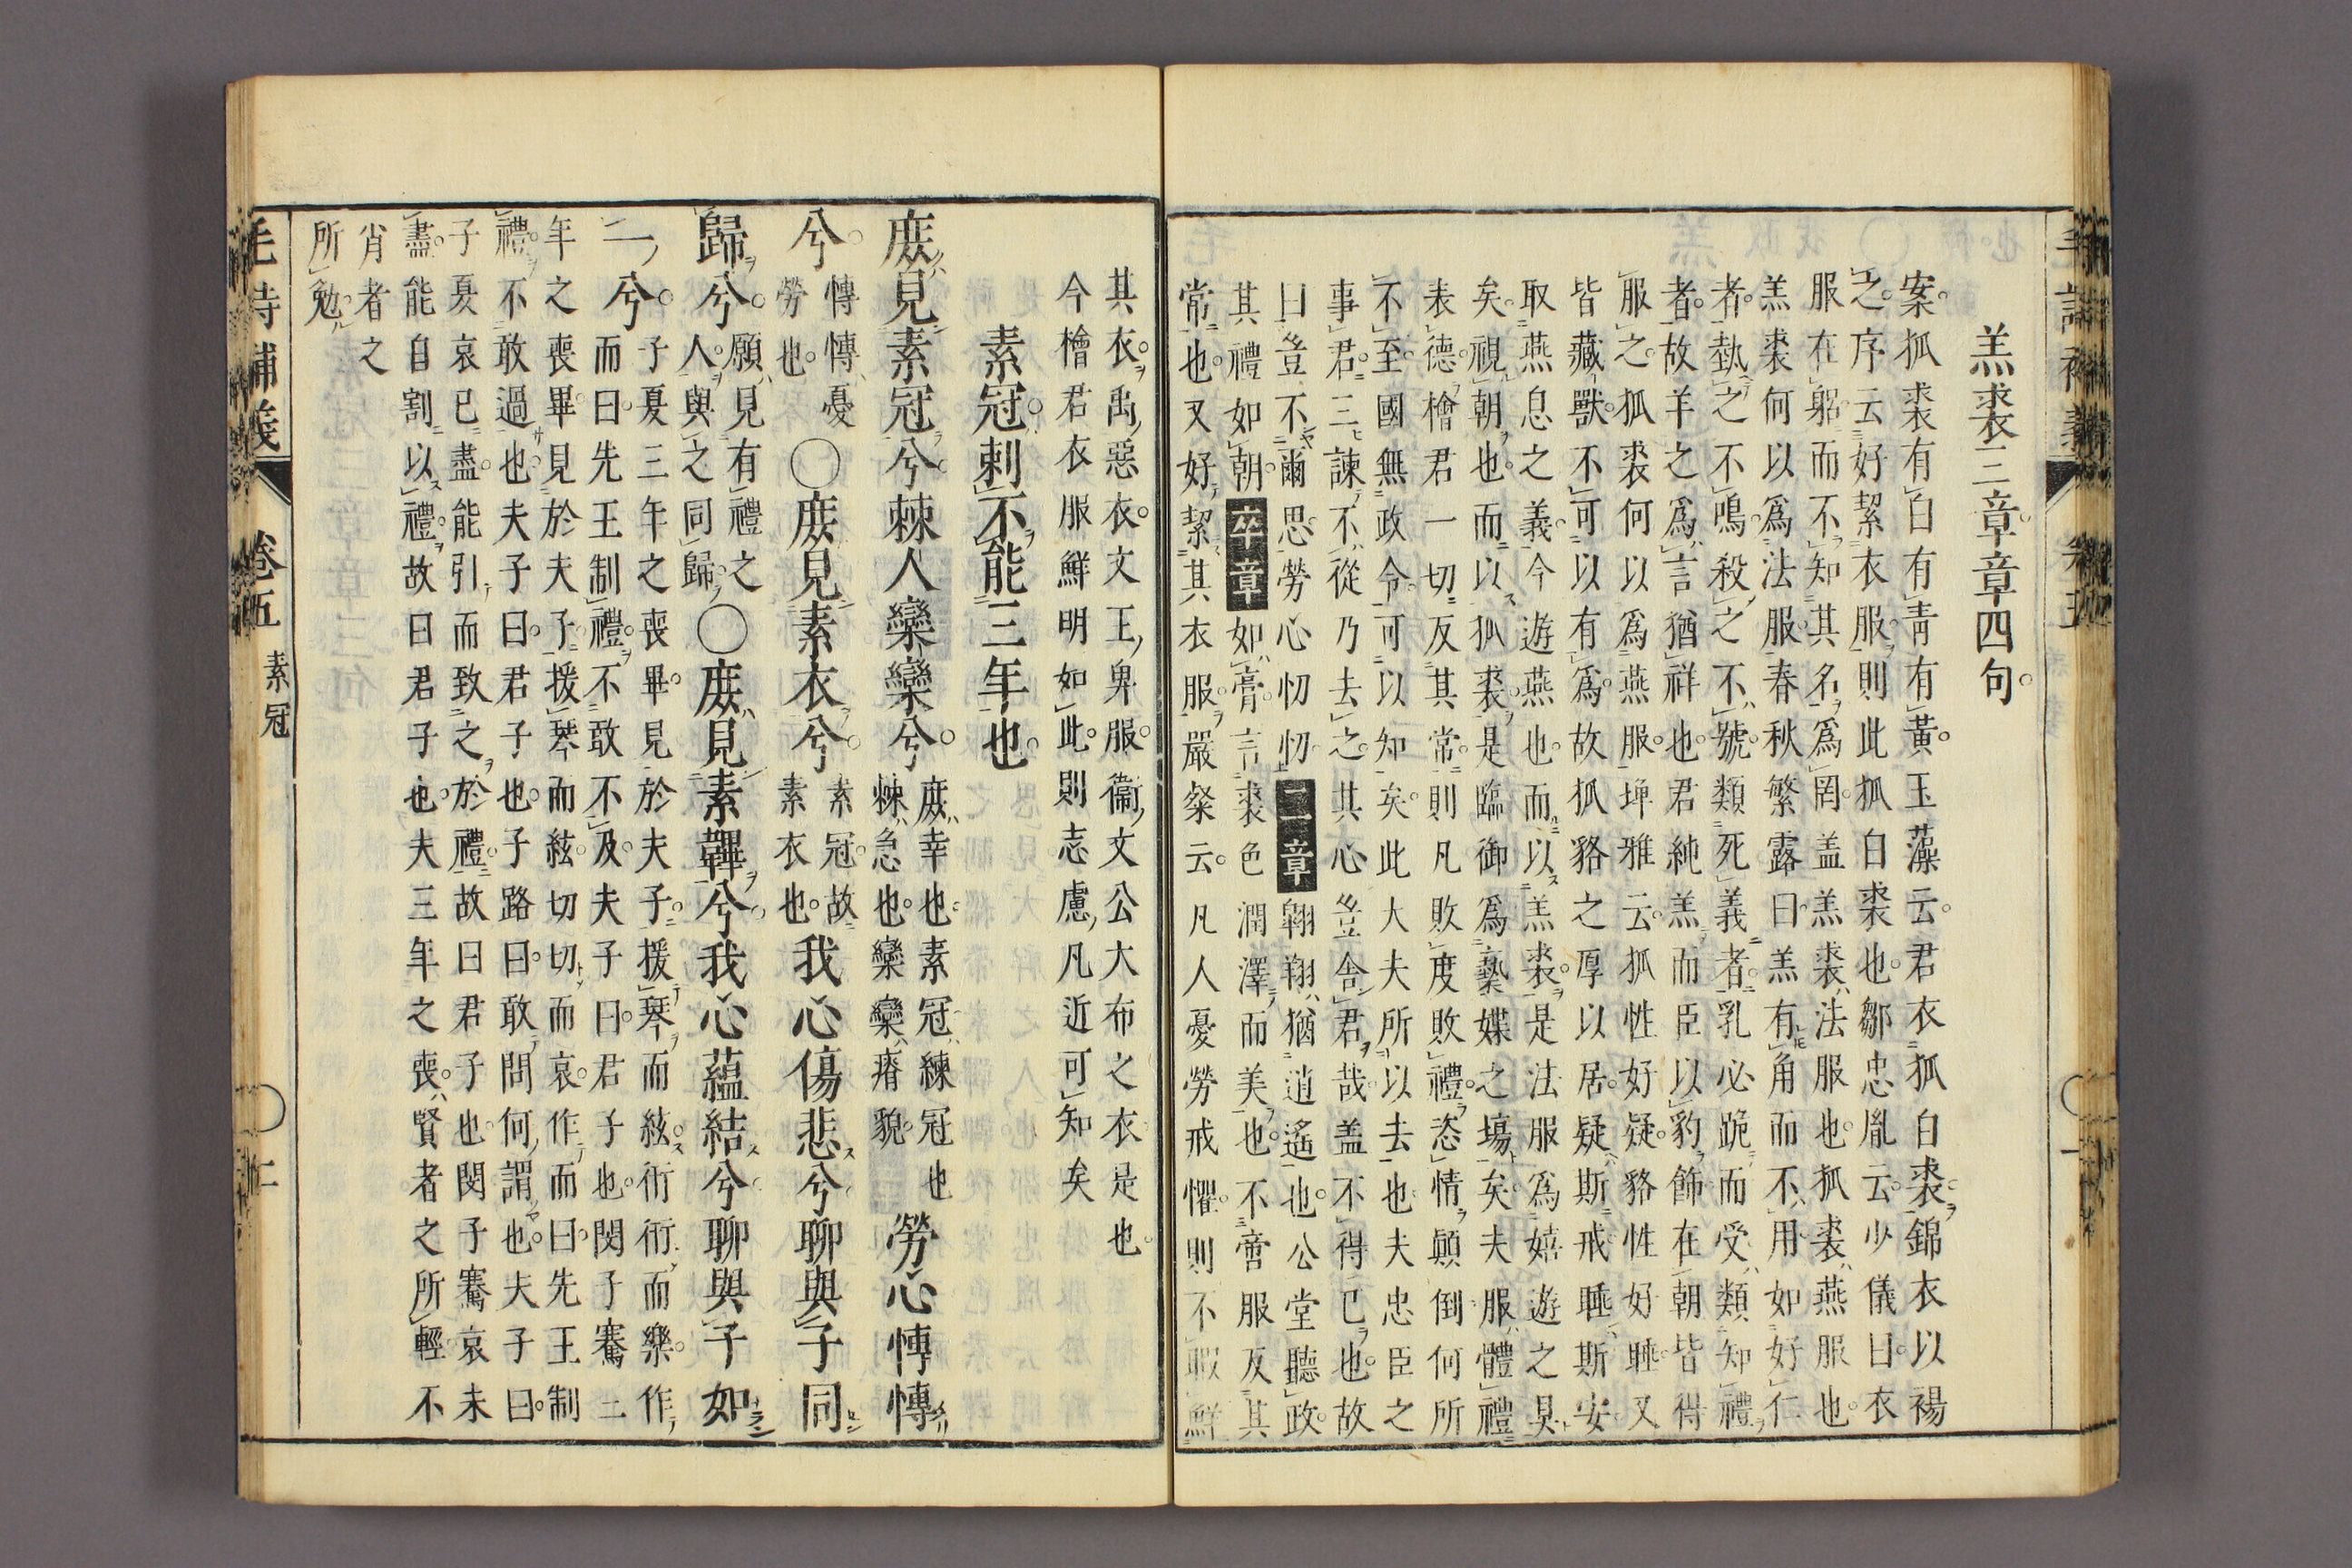 羔裘三章章四句
案狐裘有白有靑有黃玉藻云君衣狐白裘錦衣以裼
之序云好絜衣服則此狐白裘也鄒忠胤云少儀曰衣
服在躬而不知其名爲罔盖羔裘法服也狐裘燕服也
羔裘何以爲法服春秋繁露曰羔有角而不用如好仁
者執之不鳴殺之不號類死義者乳必跪而受類知禮
者故羊之爲言猶祥也君純羔而臣以豹飾在朝皆得
服之狐裘何以爲燕服埤雅云狐性好疑貉性好睡又
皆藏獸不可以有爲故狐貉之厚以居疑斯戒睡斯安
取燕息之義今遊燕也而以羔裘是法服爲嬉遊之具
矣視朝也而以狐裘是臨御爲褻媟之塲矣夫服體禮
表德檜君一切反其常則凡敗度敗禮恣情顚倒何所
不至國無政令可以知矣此大夫所以去也夫忠臣之
事君三諫不從乃去之其心豈舍君哉盖不得已也故
曰豈不爾思勞心忉忉二章翱翔猶逍遙也公堂聽政
其禮如朝卒章如膏言裘色潤澤而美也不啻服反其
常也又好絜其衣服嚴粲云凡人憂勞戒懼則不暇鮮
其衣禹惡衣文王卑服衞文公大布之衣是也
今檜君衣服鮮明如此則志慮凡近可知矣
素冠刺不能三年也
庶見素冠兮棘人欒欒兮庶幸也素冠練冠也棘急也欒欒瘠貌勞心慱慱
兮慱慱憂勞也〇庶見素衣兮素冠故素衣也我心傷悲兮聊與子同
歸兮願見有禮之人與之同歸〇庶見素韠兮我心蘊結兮聊與子如
一兮子夏三年之喪畢見於夫子援琴而絃衎衎而樂作
而曰先王制禮不敢不及夫子曰君子也閔子騫三
年之喪畢見於夫子援琴而絃切切而哀作而曰先王制
禮不敢過也夫子曰君子也子路曰敢問何謂也夫子曰
子夏哀已盡能引而致之於禮故曰君子也閔子騫哀未
盡能自割以禮故曰君子也夫三年之喪賢者之所輕不
肖者之
所勉
毛詩補義 卷五 素冠 〇 二